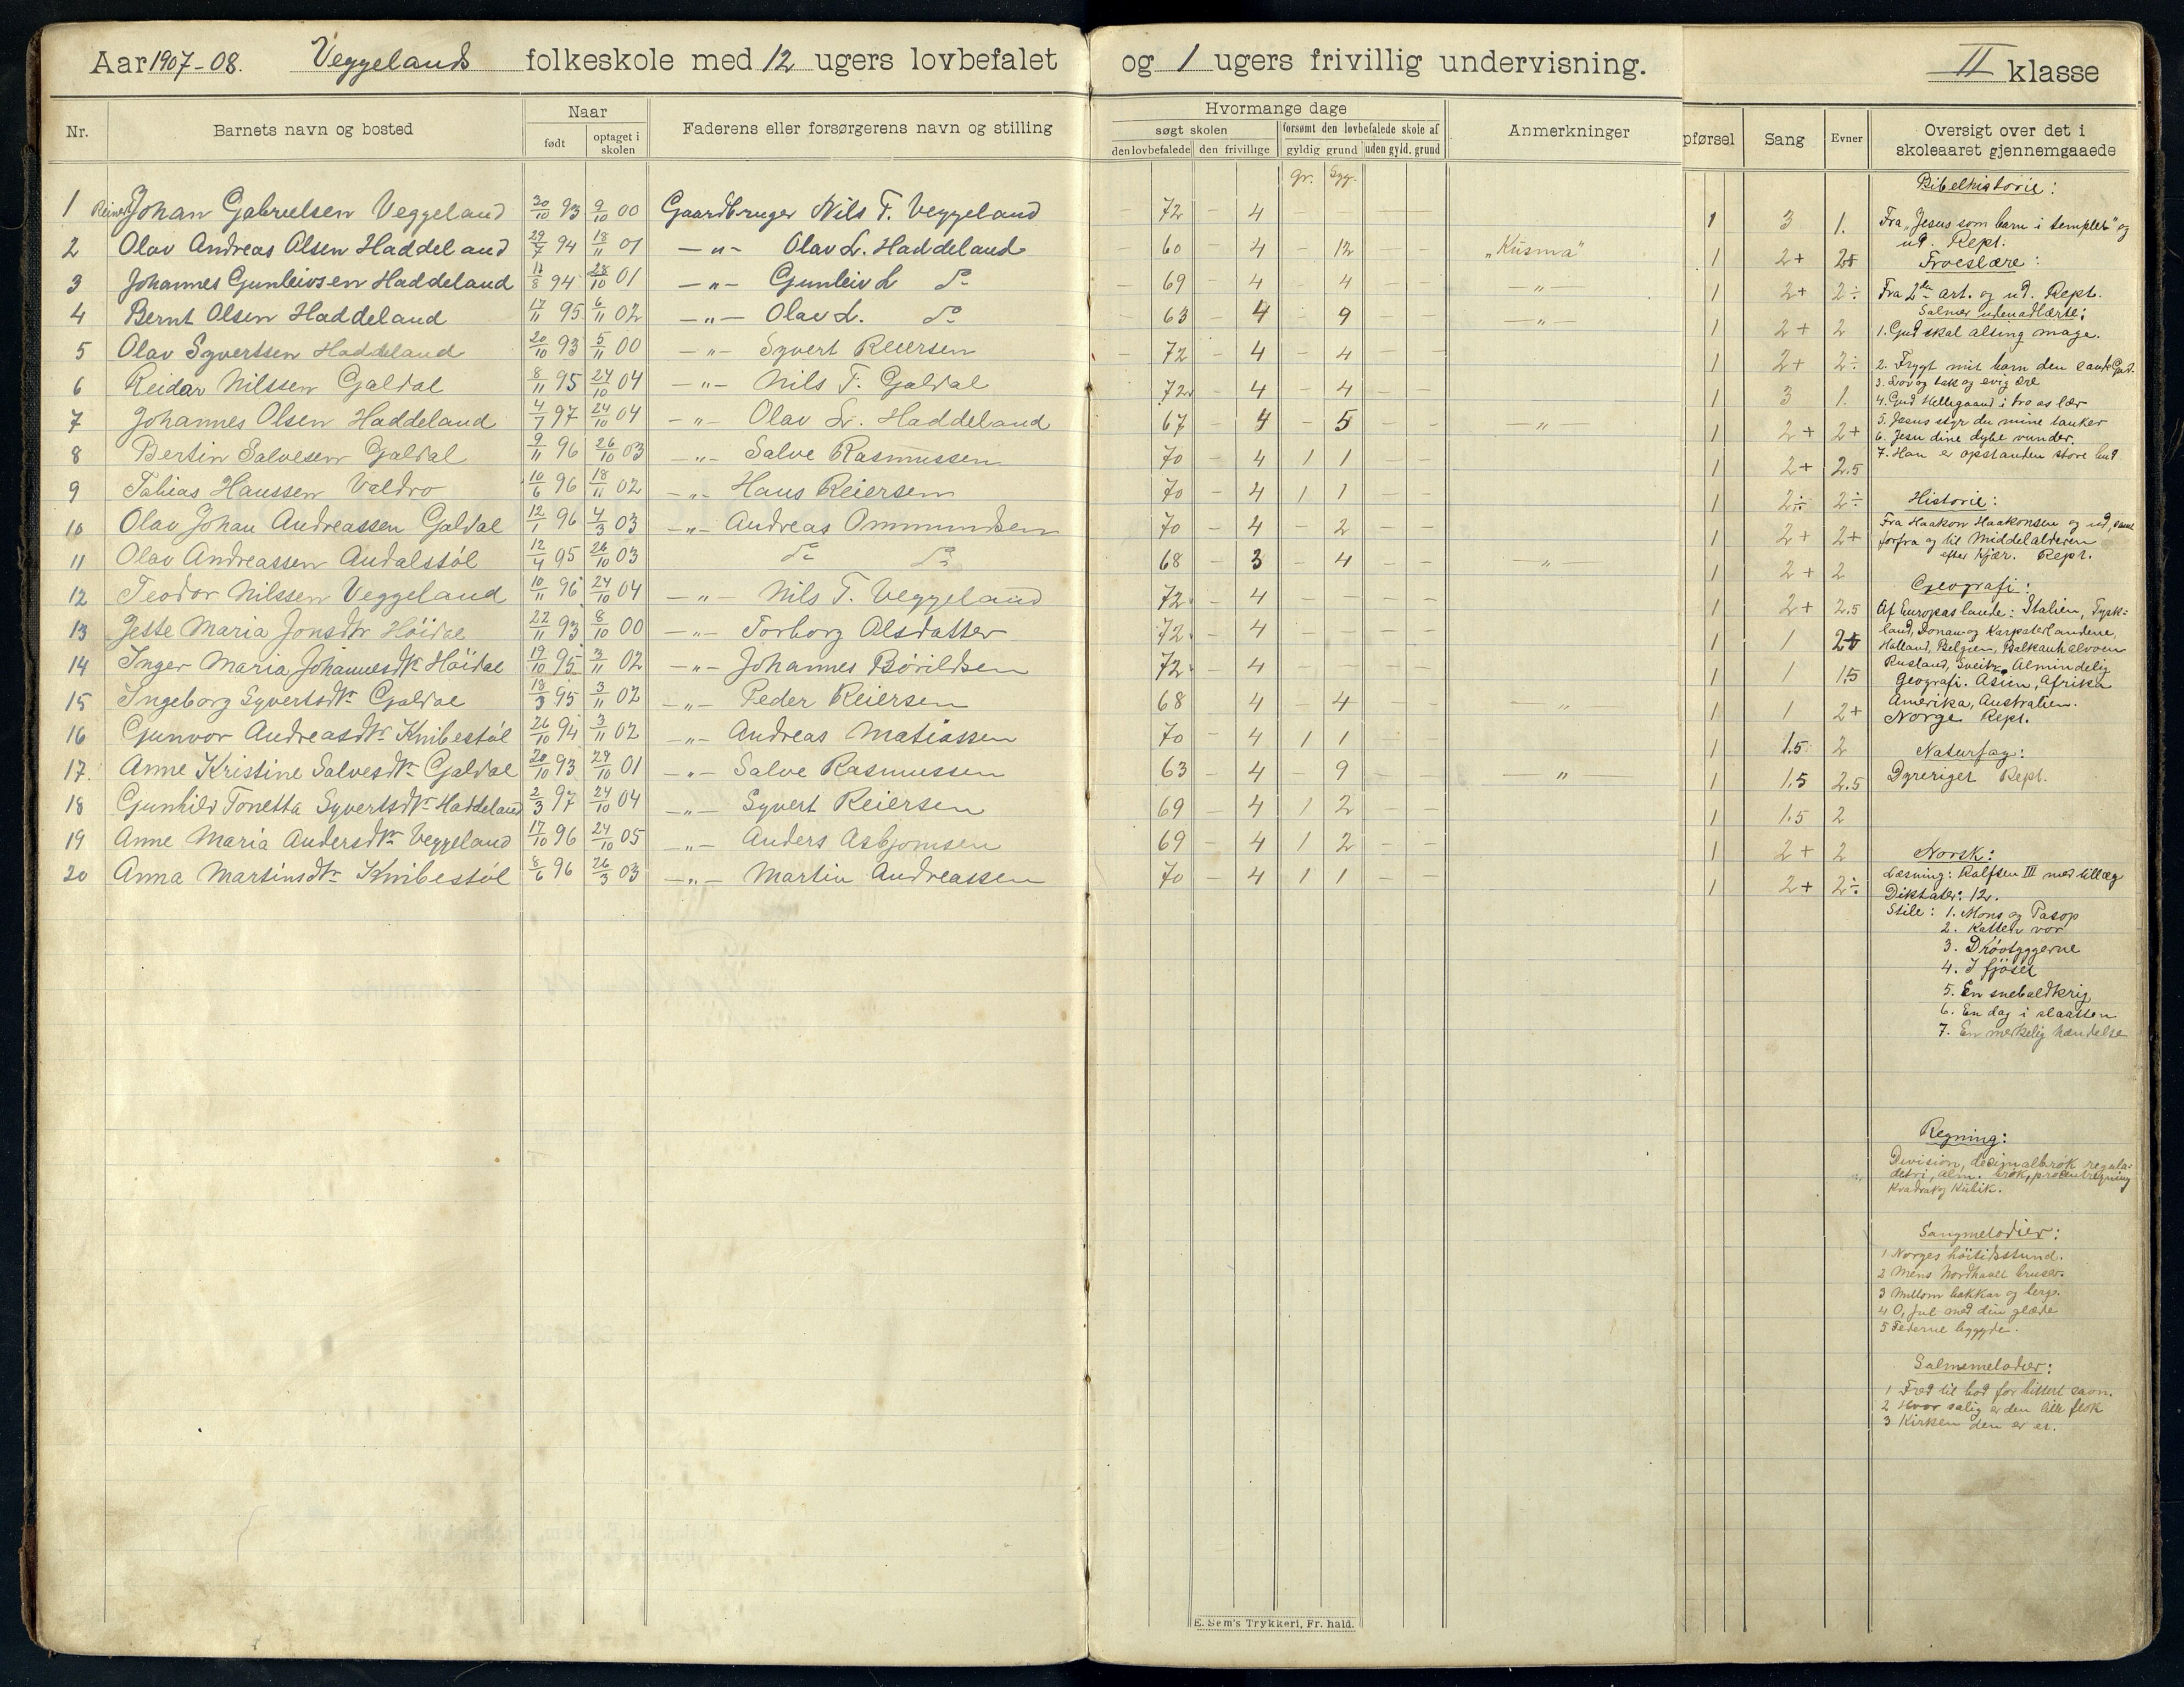 Aar 1907-08. Veggelands folkeskole med 12 ugers lovbefalet og 1 ugers frivillig undervisning. II klasse
Nr. Barnets navn og bosted Naar født optaget i skolen Faderens eller forsørgerens navn og stilling
Hvormange dage søgt skolen den lovbefalede den frivillige forsømt den lovbefalede skole af gyldig grund uden gyld. grund Anmerkninger
pførsel Sang Evner Oversigt over det i skoleaaret gjennemgaaede
gr. Syg.
1 Reinert Johan Gabrielsen Veggeland 20/10 93 9/10 00 Gaardbruger Nils T. Veggeland – 72 – 4 – – – – 1 3 1.
2 Olav Andreas Olsen Haddeland 29/7 94 18/11 01 – " – Olav L. Haddeland – 60 – 4 – 12 – – „Kusma" 1 2+ 2+
3 Johannes Gunleivsen Haddeland 11/8 94 28/10 01 – " – Gunleiv L do – 69 – 4 – 4 – – – " – 1 2+ 2÷
4 Bernt Olsen Haddeland 17/11 95 6/11 02 – " – Olav L. do – 63 – 4 – 9 – – – " – 1 2+ 2
5 Olav Syvertsen Haddeland 20/10 93 5/11 00 – " – Syvert Reiersen – 72 – 4 – 4 – – 1 2+ 2÷
6 Reidar Nilssen Galdal 8/11 95 24/10 04 – " – Nils F. Galdal 72 – 4 – 4 – – 1 3 1.
7 Johannes Olsen Haddeland 4/7 97 24/10 04 – " – Olav L. Haddeland 67 – 4 – 5 – – – " – 1 2+ 2+
8 Bertin Salvesen Galdal 9/11 96 26/10 03 – " – Salve Rasmussen 70 – 4 1 1 – – 1 2+ 2.5
9 Tobias Hanssen Valdro 10/6 96 18/11 02 – " – Hans Reiersen 70 – 4 1 1 – – 1 2÷ 2÷
10 Olav Johan Andreassen Galdal 12/1 96 4/3 03 – " – Andreas Ommundsen 70 – 4 – 2 – – 1 2+ 2+
11 Olav Andreassen Audalstöl 12/4 95 26/10 03 do do 68 – 3 – 4 – – – " – 1 2+ 2
12 Teodor Nilssen Veggeland 10/11 96 24/10 04 – " – Nils T. Veggeland 72 – 4 – – – – 1 2+ 2.5
13 Jette Maria Jonsdtr Höidal 22/11 93 8/10 00 – " – Torborg Olsdatter 72 – 4 – – – – 1 1 2+
14 Inger Maria Johannesdtr Höidal 19/10 95 3/11 02 – " – Johannes Börildsen 72 – 4 – – – – 1 1 1.5
15 Ingeborg Syvertsdtr Galdal 18/3 95 3/11 02 – " – Peder Reiersen 68 4 – 4 – – – " – 1 1 2+
16 Gunvor Andreasdtr Knibestöl 26/10 94 3/11 02 – " – Andreas Matiassen 70 – 4 1 1 – – 1 1.5 2
17. Anne Kristine Salvesdtr Galdal 20/10 93 29/10 01 – " – Salve Rasmussen 63 – 4 – 9 – – – " – 1 1.5 2.5
18 Gunhild Tonetta Syvertsdtr Haddeland 2/3 97 24/10 04 – " – Syvert Reiersen 69 4 1 2 – – 1 1.5 2
19 Anne Maria Andersdtr Veggeland 17/10 96 24/10 05 – " – Anders Asbjornsen 69 – 4 1 2 – – 1 2+ 2
20 Anna Martinsdtr Knibestöl 8/6 96 26/3 03 – " – Martin Andreassen 70 – 4 1 1 – – 1 2+ 2÷
Bibelhistorie:
Fra „Jesus som barn i templet" og
ud. Rept.
Troeslære:
Fra 2den art. og ud. Rept.
Salmer udenadlærte:
1. Gud skal alting mage.
2. Frygt mit barn den sande Gud.
3. Lov og tak og evig ære
4. Gud Helligaand i tro os lær
5. Jesus styr du mine tanker
6. Jesu dine dybe vunder.
7. Han er opstanden store bud
Historie:
Fra Haakon Haakonsen og ud, samt
forfra og til Middelalderen
efter hjær. Rept.
Geografi:
Af Europas lande: Italien, Tysk-
land, Donau og Karpaterlandene,
Holland, Belgien, Balkanhalvøen
Rusland, Sveitz. Almindelig
geografi. Asien, Afrika
Amerika, Australien.
Norge Rept.
Naturfag:
Dyreriget Rept.
Norsk:
Læsning: Rolfsen III med tillæg
Diktater: 12.
Stile: 1. Mons og Pasop
2. Katten vor
3. Drøvtyggerne
4. I fjøset
5. En snebaldkrig
6. En dag i slaatten
7. En merkelig hændelse
Regning:
Division, decimalbrøk regula-
detri, alm. brøk, procentregning
Kvadrat og Kubik.
Sangmelodier:
1 Norges höitidsstund.
2 Mens Nordhavet bruser.
3 Millom bakkar og berg.
4 O, jul med din glæde
5 Federne byggede.
Salmemelodier:
1 Fred til bod for bittert savn.
2 Hvor salig er den lille flok
3 Kirken den er et.
E. Sem's Trykkeri, Fr. hald.